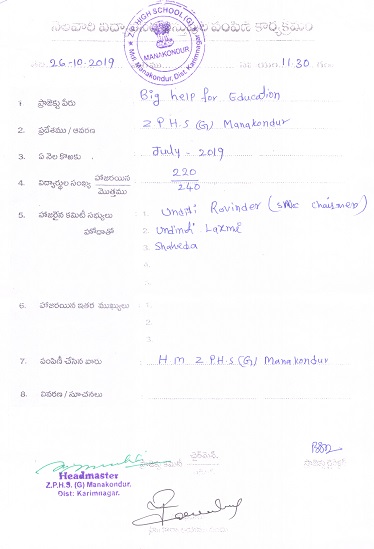 Z.P. HIGH SCHOOL (G)
MANAKONDUR
Mdl. Manakondur, Dist. Karimnagar
26-10-2019 11.30
1. ప్రాజెక్టు పేరు Big help for Education
2. ప్రదేశము / ఆవరణ Z.P.H.S (G) Manakondur
3. ఏ నెల కొఱకు July - 2019
4. విద్యార్థుల సంఖ్య హాజరయిన 220
మొత్తము 240
5. హాజరైన కమిటి సభ్యులు 1. Ravinder (SMC Chairmen)
హోదాతో 2. Laxmi
3. Shaheda
4.
5.
6. హాజరయిన ఇతర ముఖ్యులు 1.
2.
3.
7. పంపిణీ చేసిన వారు H M Z P.H.S (G) Manakondur
8. వివరణ / సూచనలు
Headmaster
Z.P.H.S. (G) Manakondur.
Dist: Karimnagar.